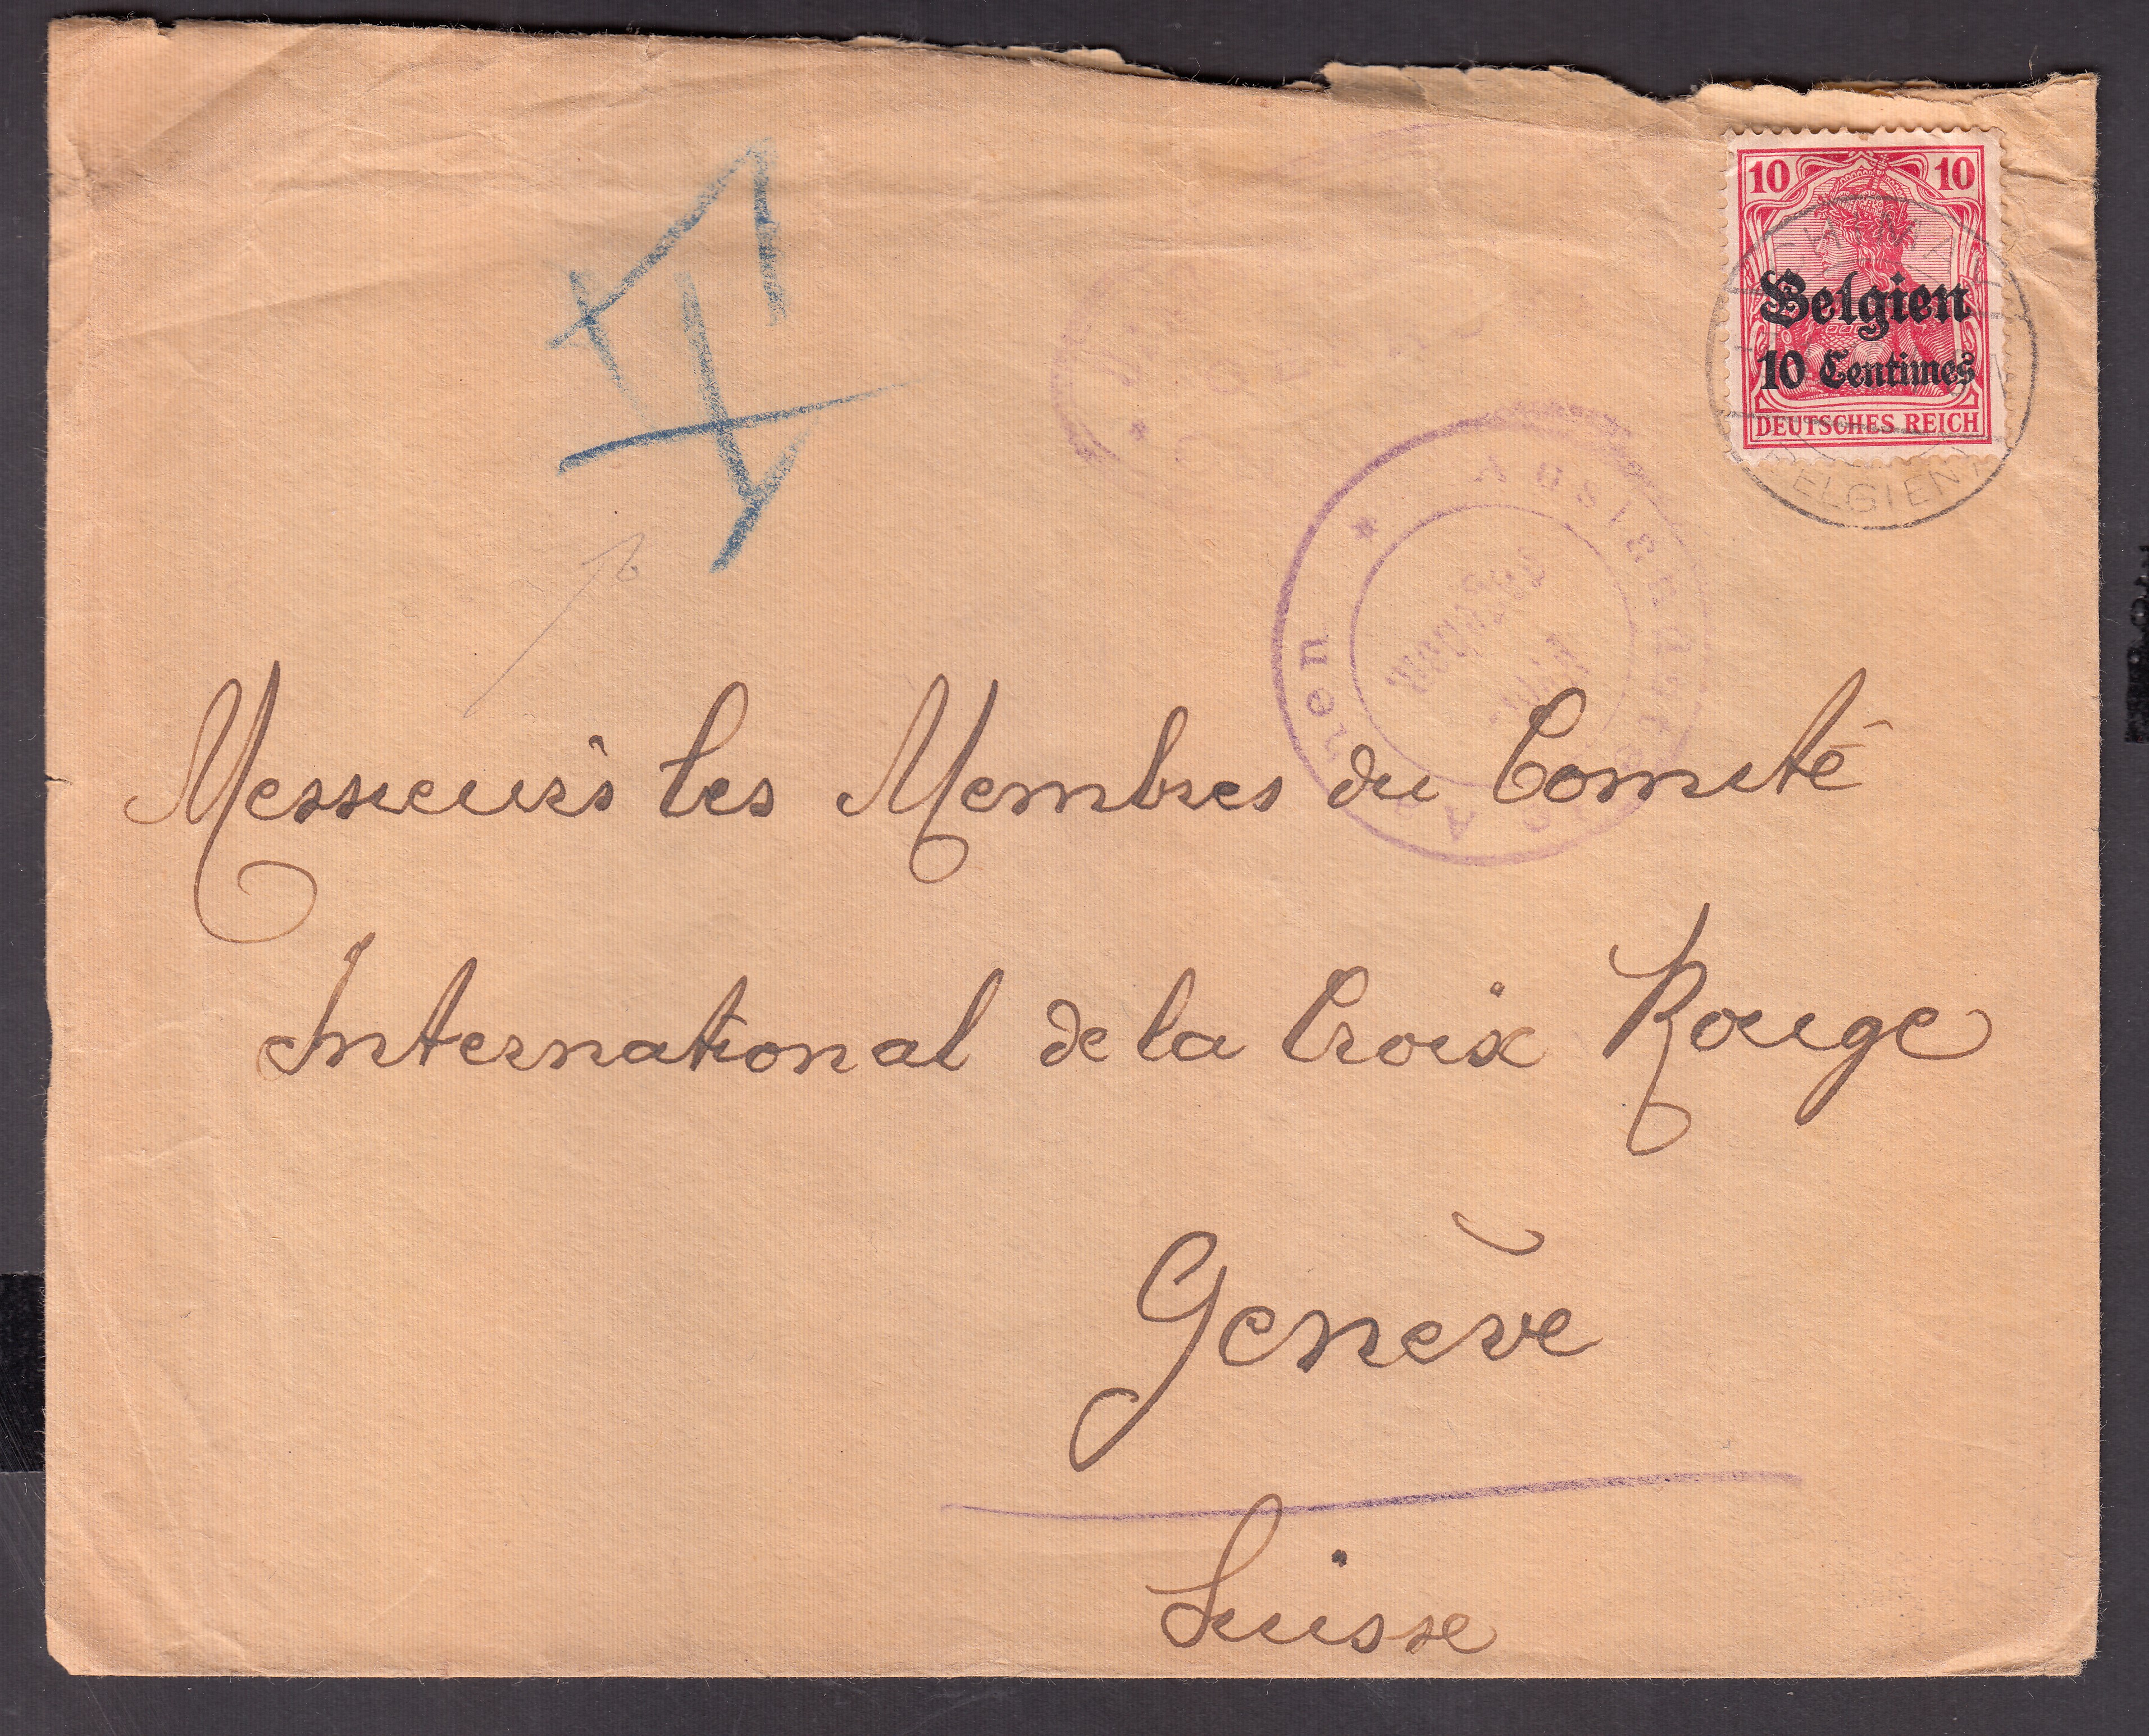 10 10
Belgien
10 Centimes
DEUTSCHES REICH
BELGIEN
Messieurs les Membres du Comité
International de la Croix Rouge
Genève
Suisse